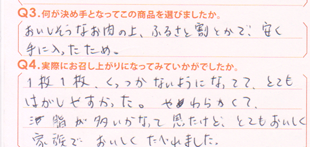 Q3.何が決め手となってこの商品を選びましたか。
おいしそうなお肉の上、ふるさと割とかで、安く
手に入ったため。
Q4.実際にお召し上がりになってみていかがでしたか?
1枚1枚、くっつかないようになってて、とても
はがしやすかった。やわらかくて、
油脂が多いかなって思たけど、とてもおいしく
家族でおいしくたべれました。